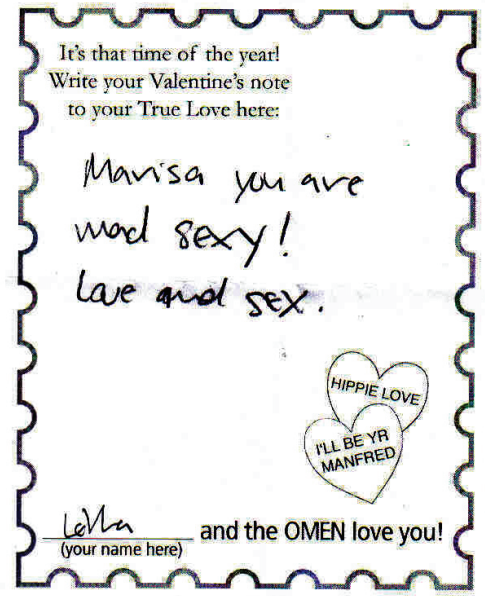 It's that time of the year!
Write your Valentine's note
to your True Love here:
Marisa you are
mad sexy!
Love and sex.
HIPPIE LOVE
I'LL BE YR
MANFRED
and the OMEN love you!
(your name here)